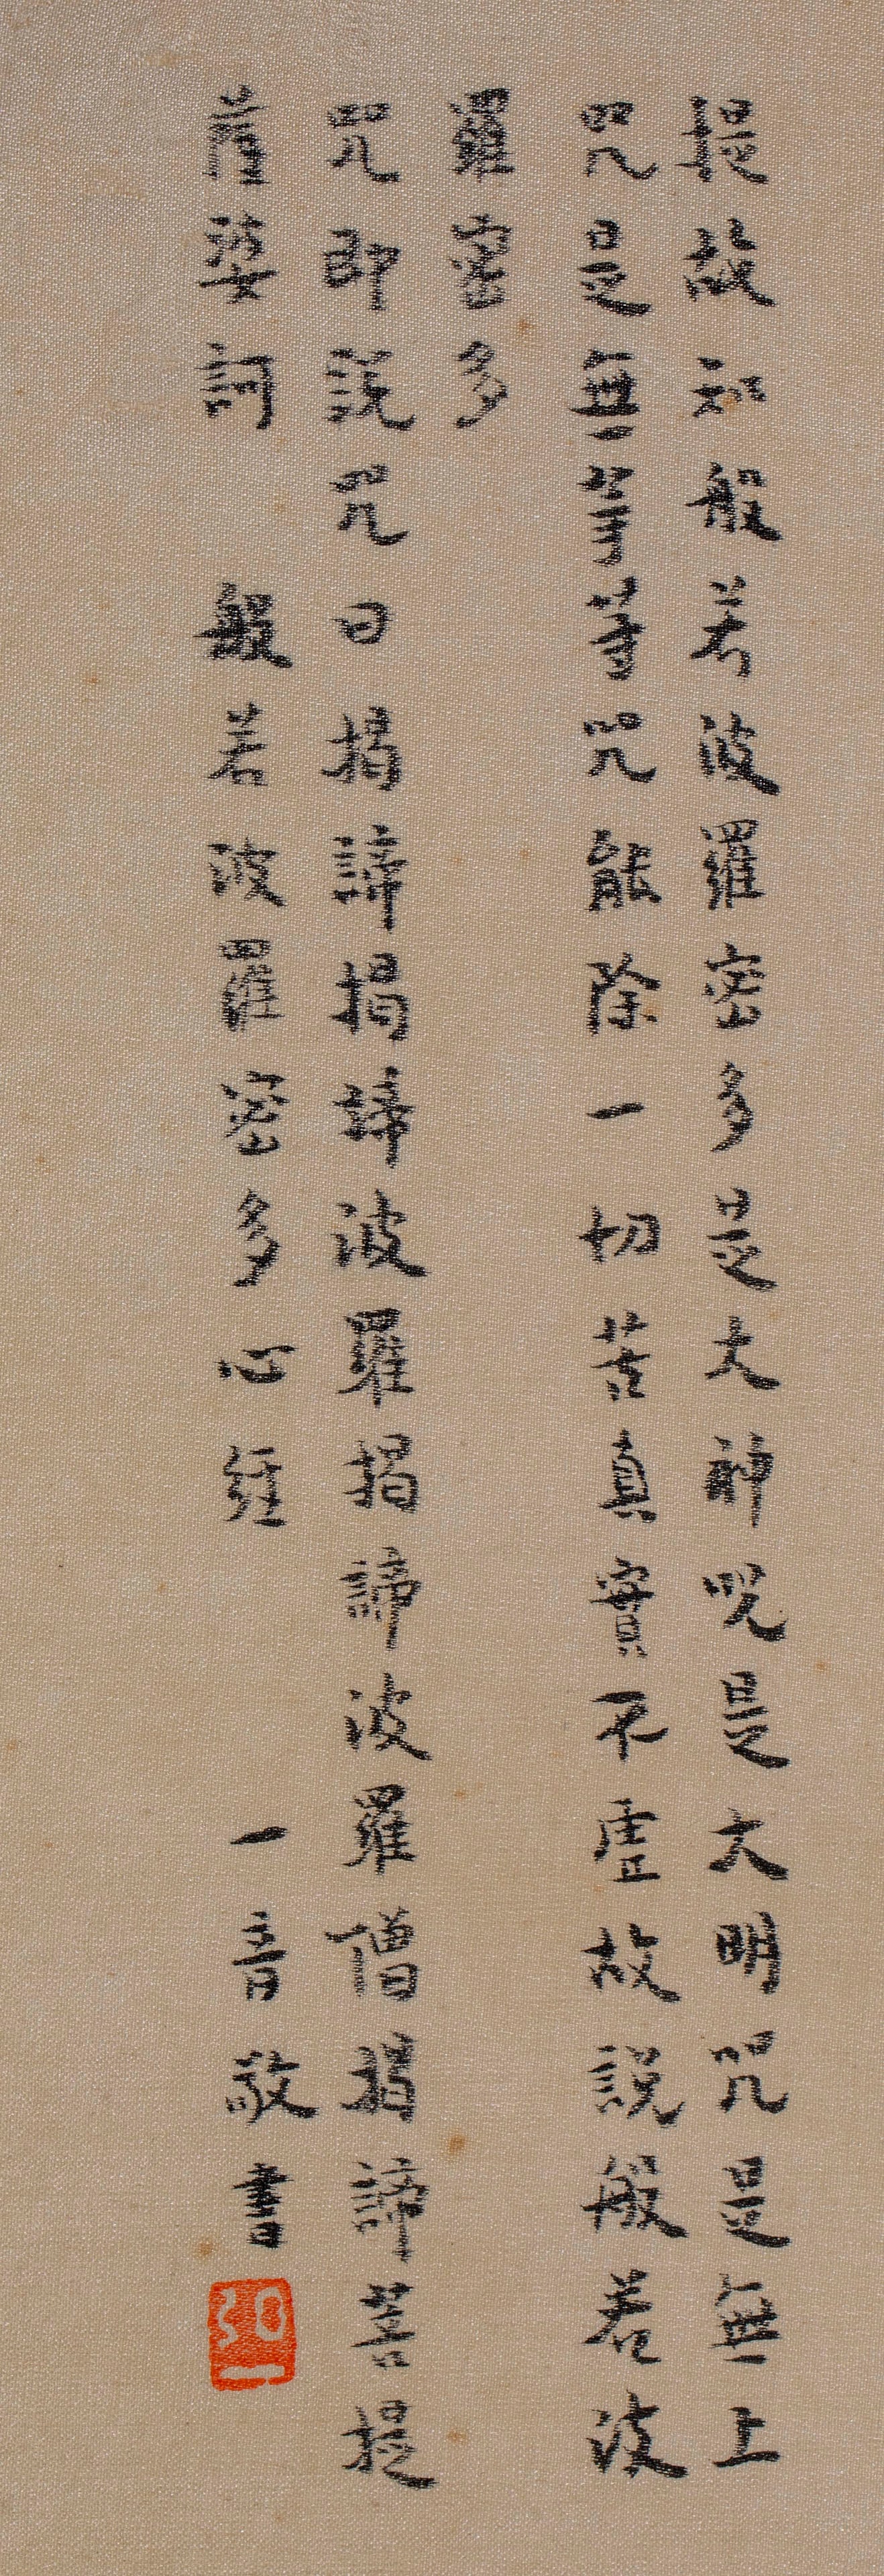 提故知般若波羅密多是大神咒是大明咒是無上
咒是無等等咒能除一切苦真實不虛故說般若波
羅密多
咒即說咒曰揭諦揭諦波羅揭諦波羅僧揭諦菩提
薩婆訶 般若波羅密多心經 一音敬書